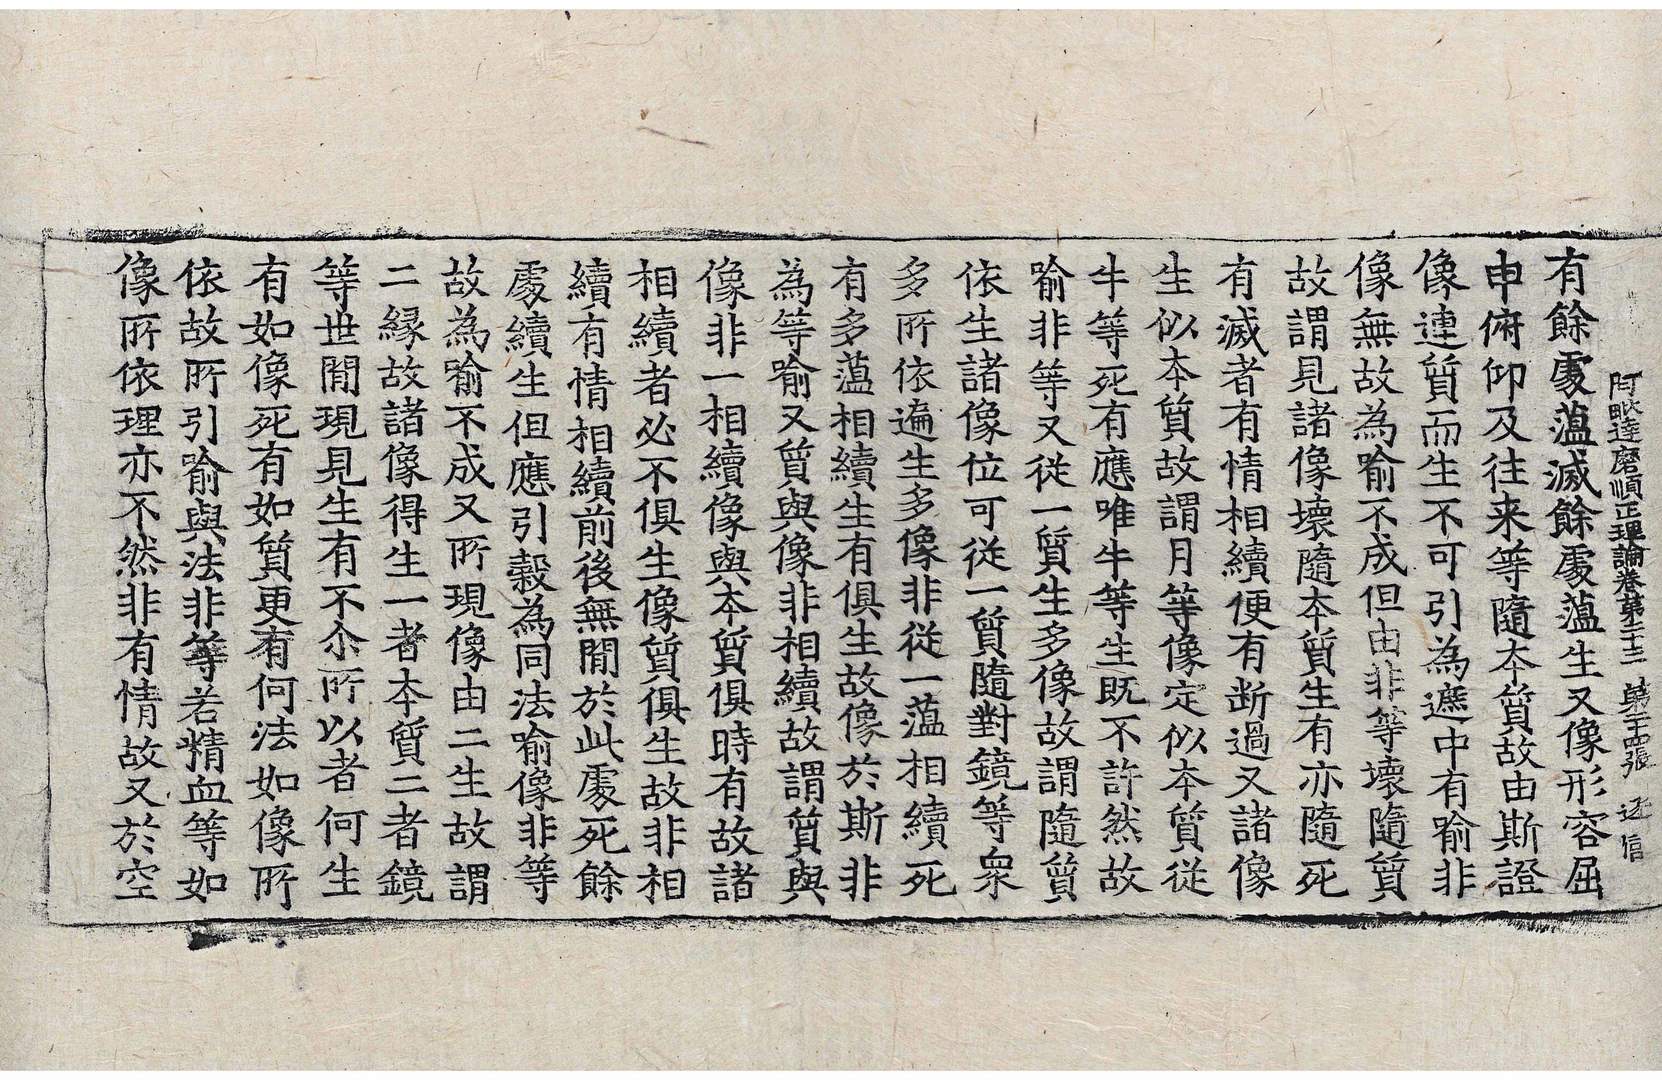 阿毗達磨順正理論卷第二十三 第二十四張 迂信
有餘處薀滅餘處薀生又像形容屈
申俯仰及往来等隨本質故由斯證
像連質而生不可引為遮中有喻非
像無故為喻不成但由非等壞隨質
故謂見諸像壞隨本質生有亦隨死
有滅者有情相續便有断過又諸像
生似本質故謂月等像定似本質從
牛等死有應唯牛等生既不許然故
喻非等又從一質生多像故謂隨質
依生諸像位可從一質隨對鏡等衆
多所依遍生多像非從一薀相續死
有多薀相續生有俱生故像於斯非
為等喻又質與像非相續故謂質與
像非一相續像與本質俱時有故諸
相續者必不俱生像質俱生故非相
續有情相續前後無閒於此處死餘
處續生但應引穀為同法喻像非等
故為喻不成又所現像由二生故謂
二縁故諸像得生一者本質二者鏡
等世閒現見生有不尒所以者何生
有如像死有如質更有何法如像所
依故所引喻與法非等若精血等如
像所依理亦不然非有情故又於空